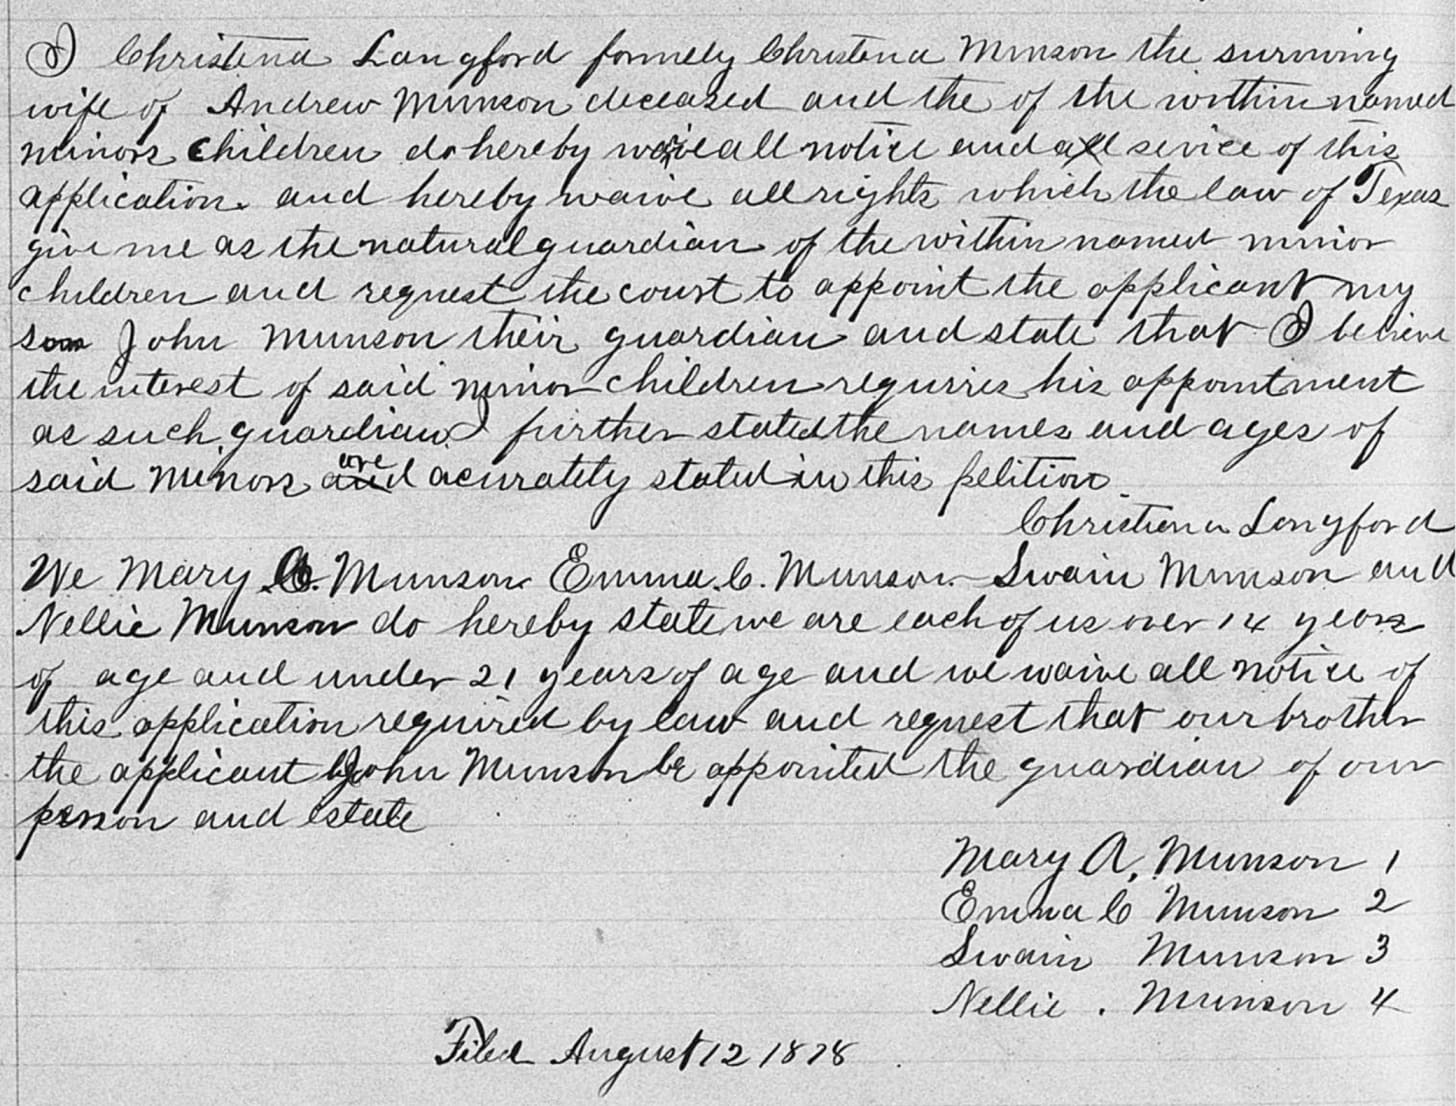 I Christena Langford formely Christena Munson the surviving
wife of Andrew Munson deceased and the of the within named
minors children do hereby waive all notice and all sevice of this
application. and hereby waive all rights which the law of Texas
give me as the natural guardian of the within named minor
children and request the court to appoint the applicant my
son John Munson their guardian and state that I believe
the interest of said minor children requires his appointment
as such guardian I further stated the names and ages of
said minors are acurately stated in this petition
Christiena Langford
We Mary A. Munson Emma. C. Munson Swain Munson and
Nellie Munson do hereby state we are each of us over 14 years
of age and under 21 years of age and we waive all notice of
this application required by law and request that our brother
the applicant John Munson be appointed the guardian of our
person and estate
Mary A. Munson 1
Emma C Munson 2
Swain Munson 3
Nellie . Munson 4
Filed August 12 1878